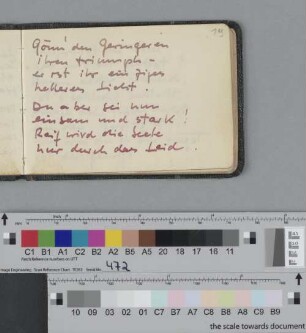 Gönn' den Geringeren
ihren Triumph –
er ist ihr einziges
helleres Licht.
Du aber sei nun
einsam und stark!
Reif wird die Seele
nur durch das Leid.
C1 B1 A1 C2 B2 A2 B5 A5 20 18 17 16 11
472
10 09 03 02 01 C7 B7 A7 C8 B8 A8 C9 B9
the scale towards document